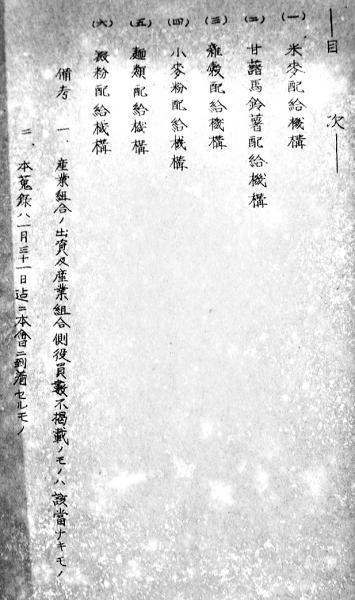 ―目 次―
(一) 米麥配給機構
(二) 甘藷馬鈴薯配給機構
(三) 雜穀配給機構
(四) 小麥粉配給機構
(五) 麵類配給機構
(六) 澱粉配給機構
備考 一、産業組合ノ出資及産業組合側役員數不揭載ノモノハ該當ナキモノ
二、本蒐錄ハ一月三十一日迠ニ本會ニ到着セルモノ